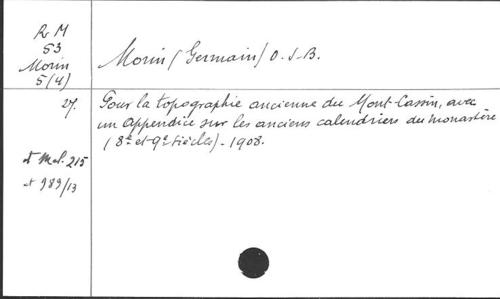 R M
53
Morin
5(4)
Morin (Germain) O.S.B.
27.
Pour la topographie ancienne du Mont-Cassin, avec
un Appendice sur les anciens calendriers du monastère
(8e et 9e siècles). - 1908.
et Mel. 215
et 989/13